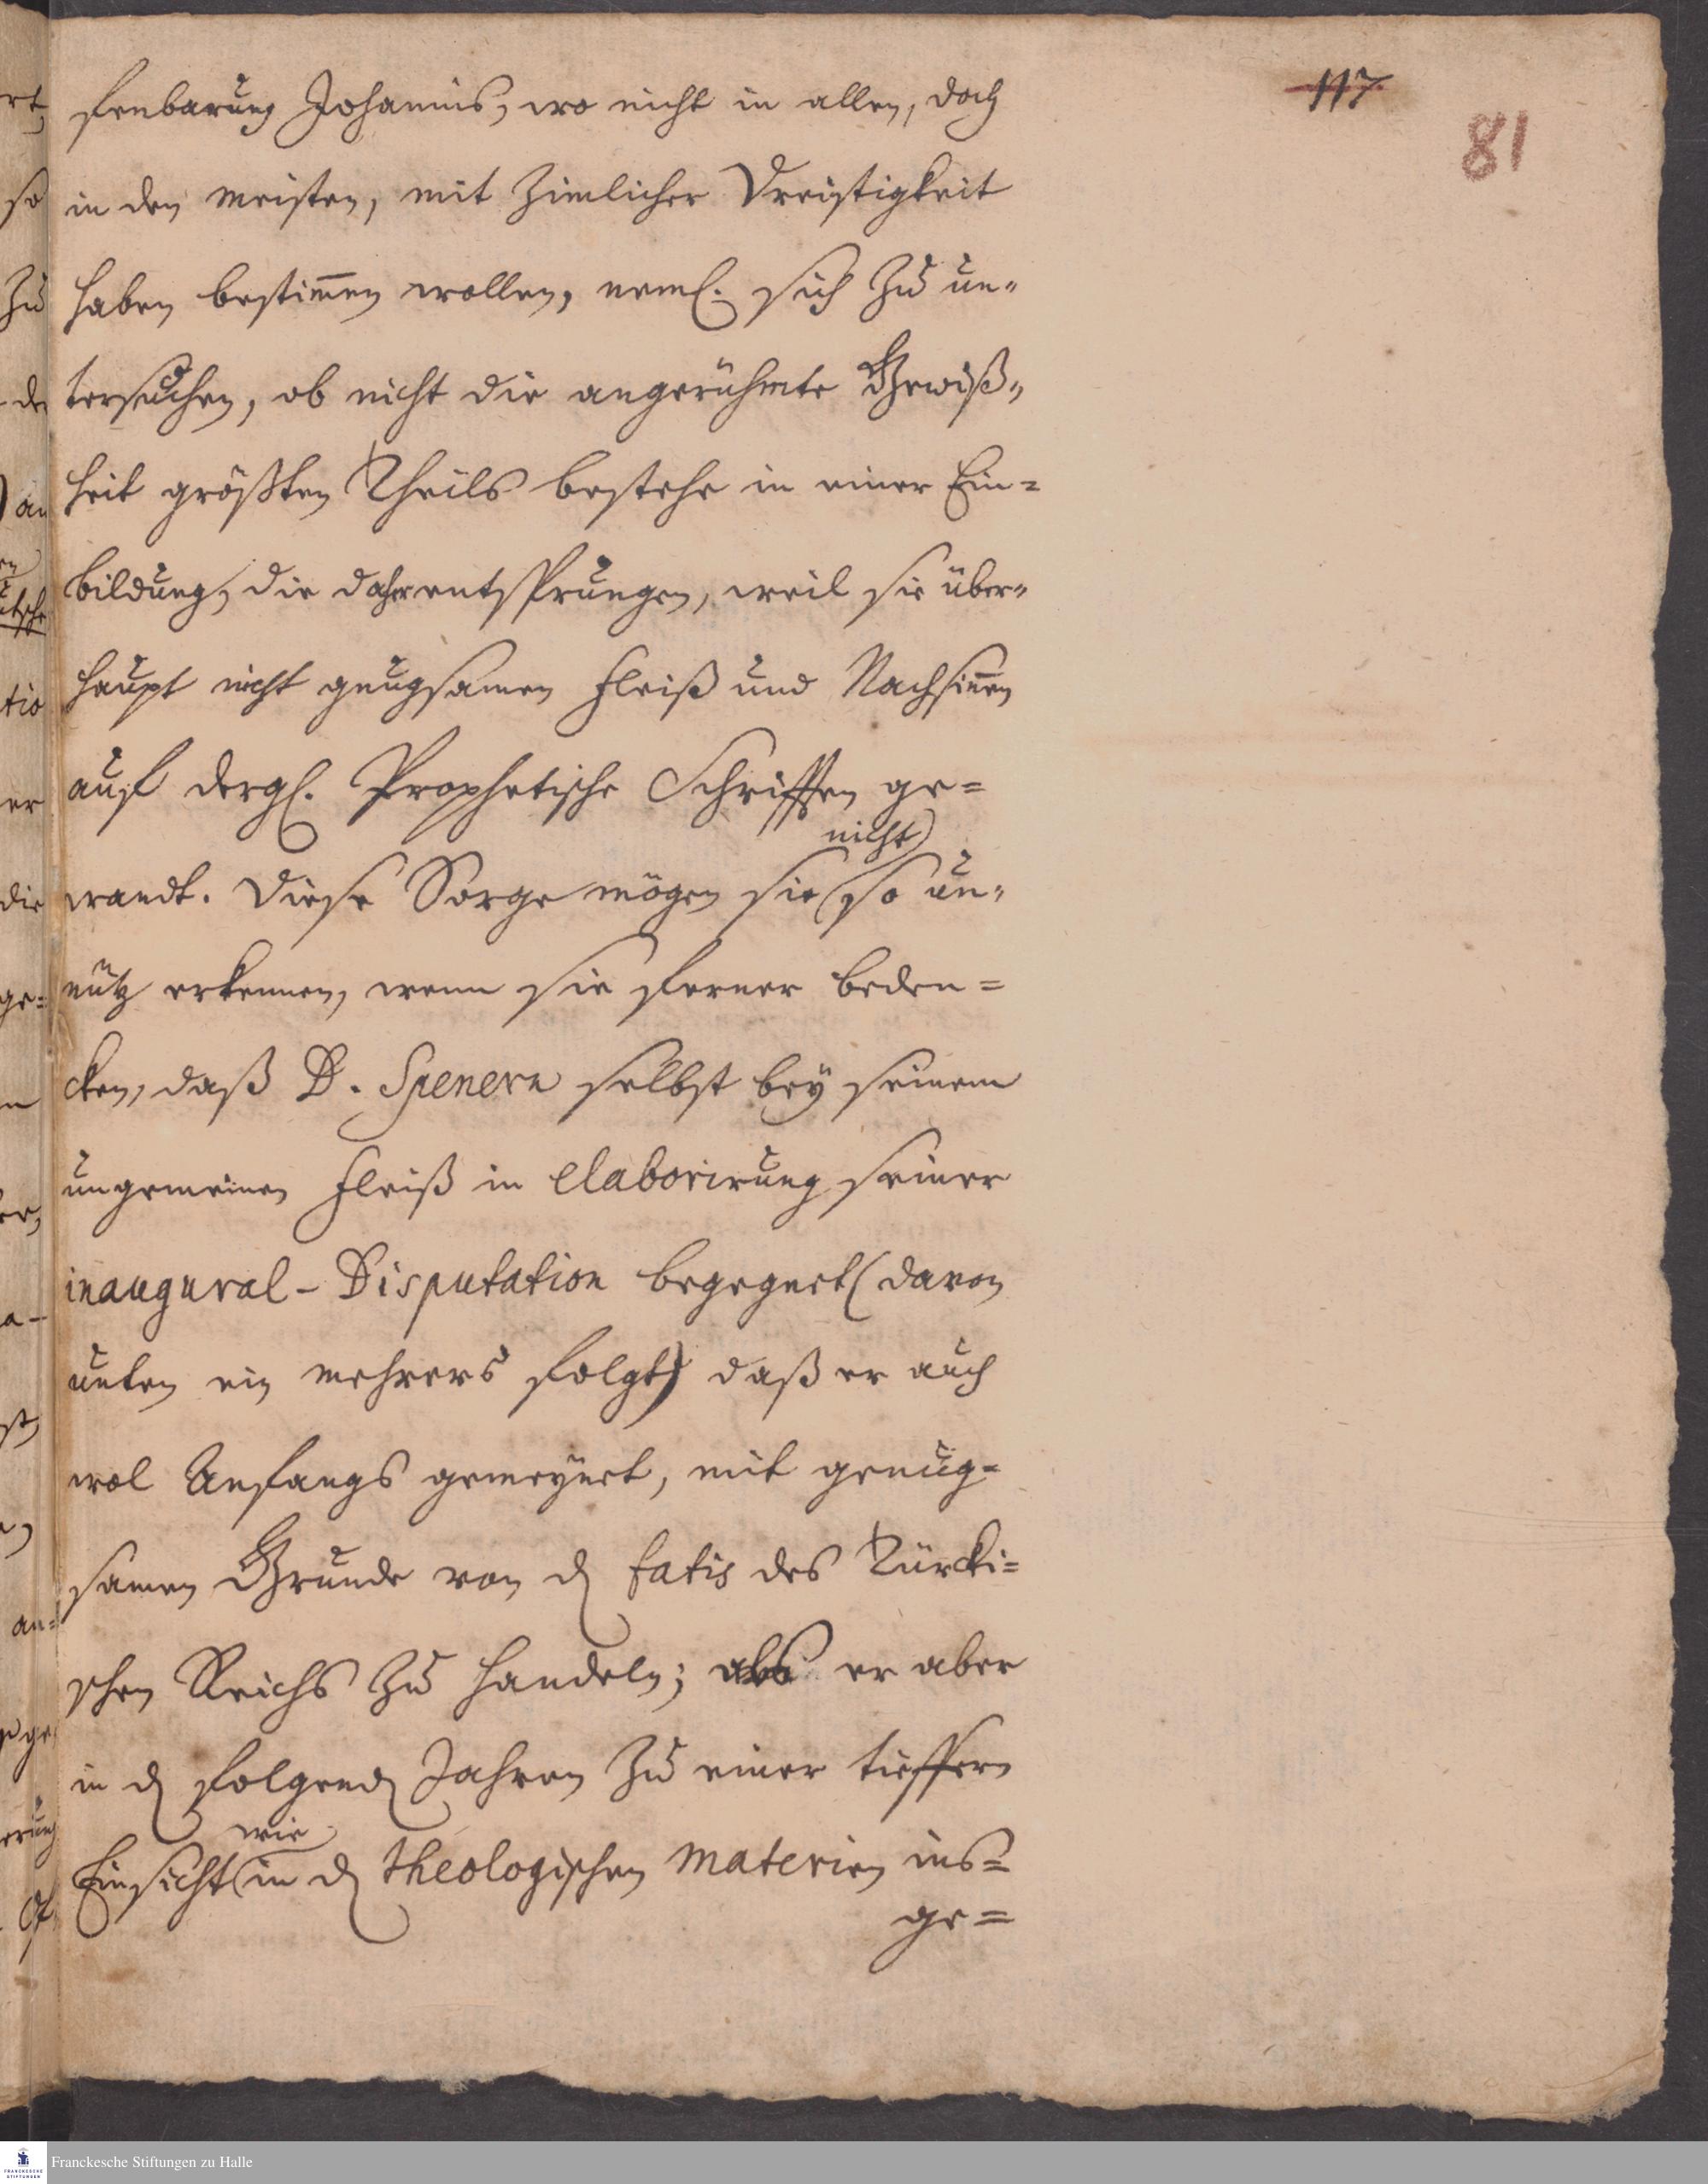 117
81
fenbarung Johannis, wo nicht in allen, doch
in den meisten, mit zimlicher Dreistigkeit
haben bestim̄en wollen, neml. sich zu un-
tersuchen, ob nicht die angerühmte Gewiß-
heit größten Theils bestehe in einer Ein-
bildung, die daher entsprungen, weil sie über-
haupt nicht gnugsamen Fleiß und Nachsin̄en
auf dergl. Prophetische Schrifften ge-
nicht
wandt. Diese Sorge mögen sie so un-
nütz erkennen, wenn sie ferner beden-
cken, daß D. Spenern selbst bey seinem
ungemeinen Fleiß in elaborirung seiner
inaugural-Disputation begegnet (davon
unten ein mehrers folgt) daß er auch
wol Anfangs gemeynet, mit genug-
samen Grunde von d fatis des Türcki-
schen Reichs zu handeln; als er aber
in d folgend Jahren zu einer tieffern
wie
Einsicht in d theologischen Materien ins-
ge-
Franckesche Stiftungen zu Halle